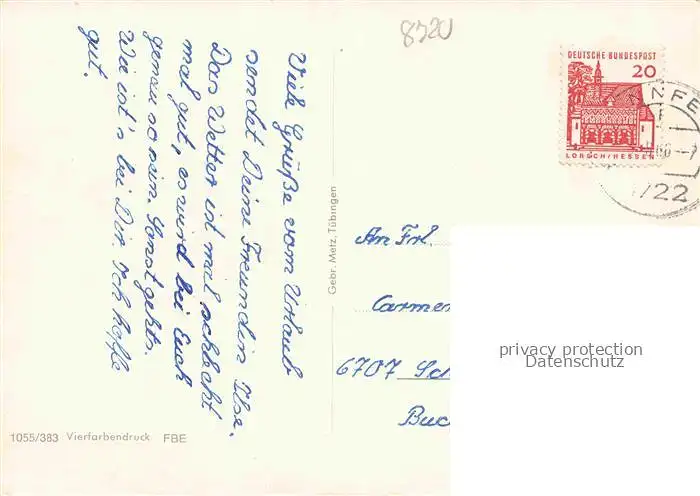 8920
DEUTSCHE BUNDESPOST
20
LORSCH/HESSEN
NFE
722
Viele Grüße vom Urlaub
sendet Deine Freundin Ilse.
Das Wetter ist mal schlecht
mal gut, es wird bei Euch
genau so sein. Sonst gehts.
Wie ist's bei Dir. Ich hoffe
gut.
Gebr. Metz, Tübingen
An Frl.
Carmen
6707
Buc
privacy protection
Datenschutz
1055/383 Vierfarbendruck FBE